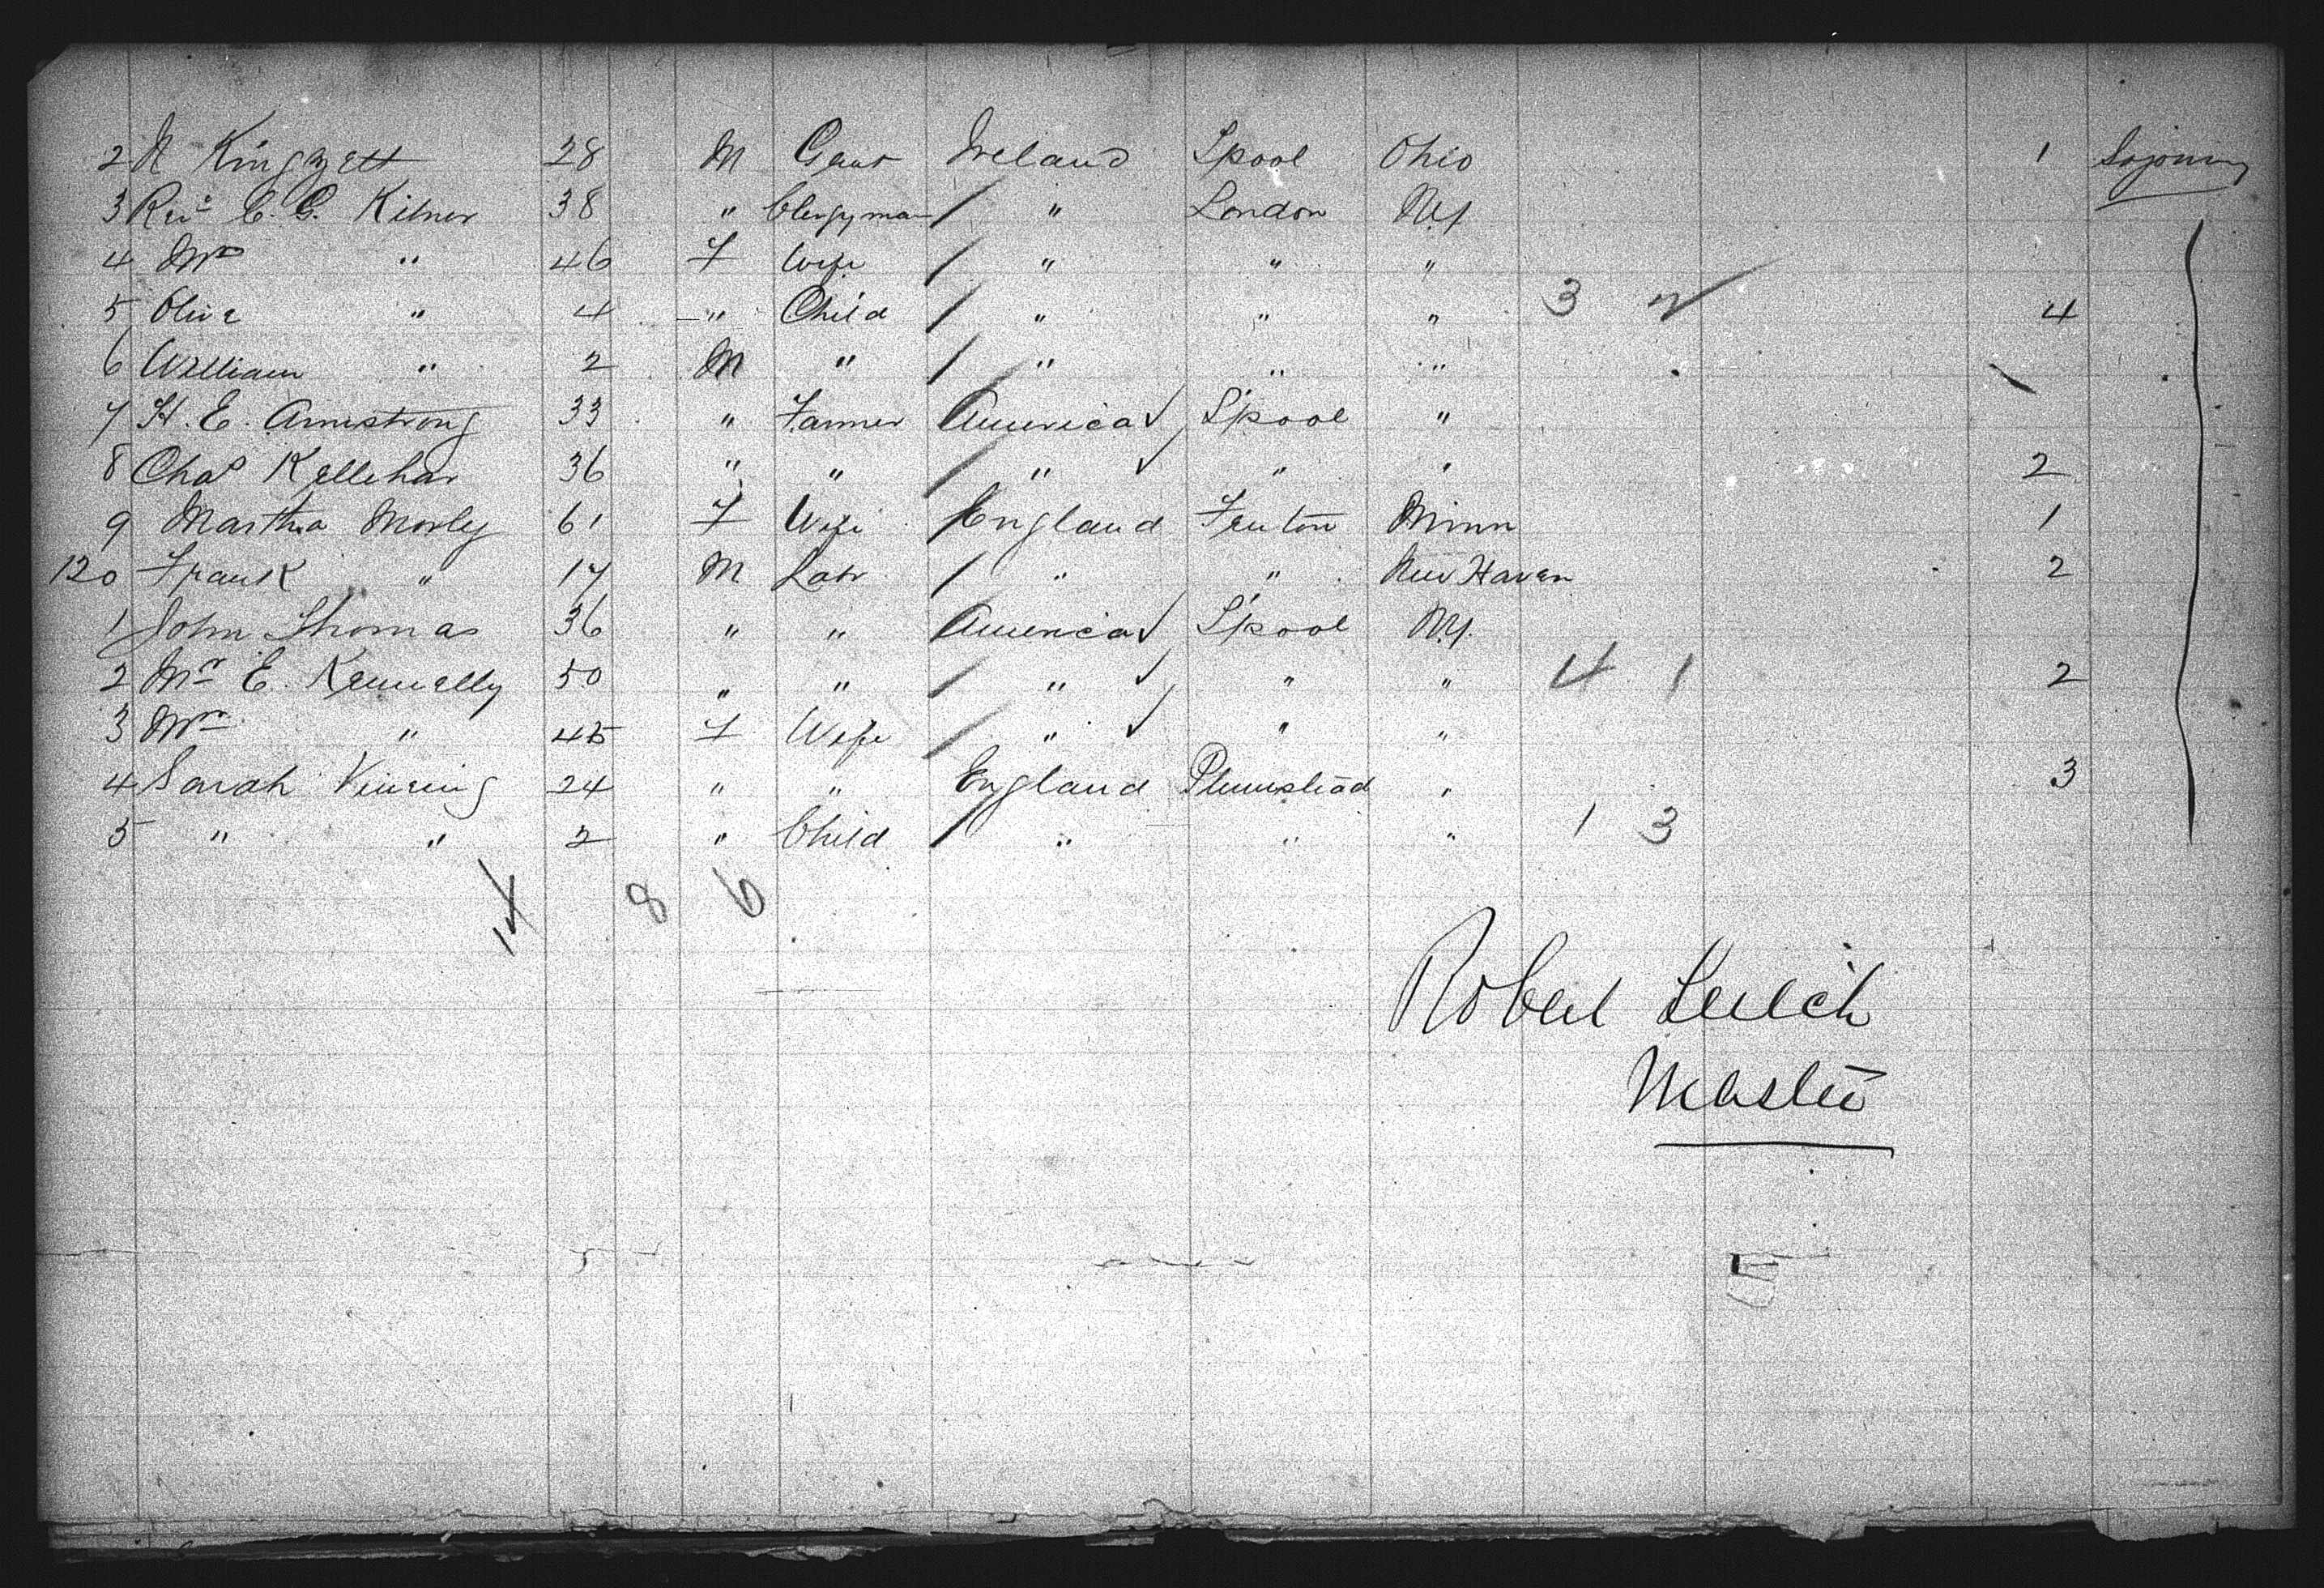 2 N Kingzett 28 M Gent Ireland L'pool Ohio 1 Sojourng
3 Revd C. G. Kilner 38 " Clergyman / " London N.Y.
4 Mrs " 46 F Wife / " " "
5 Olive " 4 " Child / " " " 3 4
6 William " 2 M " / " " "
7 H. E. Armstrong 33 " Farmer America ✓ L'pool "
8 Chas Kellehar 36 " " / " ✓ " " 2
9 Martha Morly 61 F Wife England Fenton Minn 1
120 Frank " 17 M Labr / " " New Haven 2
1 John Thomas 36 " " America ✓ L'pool N.Y.
2 Mr E. Kennelly 50 " " / " ✓ " " 4 1 2
3 Mrs " 45 F Wife / " ✓ " "
4 Sarah Vinering 24 " " England Plumstead " 3
5 " " 2 " Child / " " " 1 3
14 8 6
Robert Leech
Master